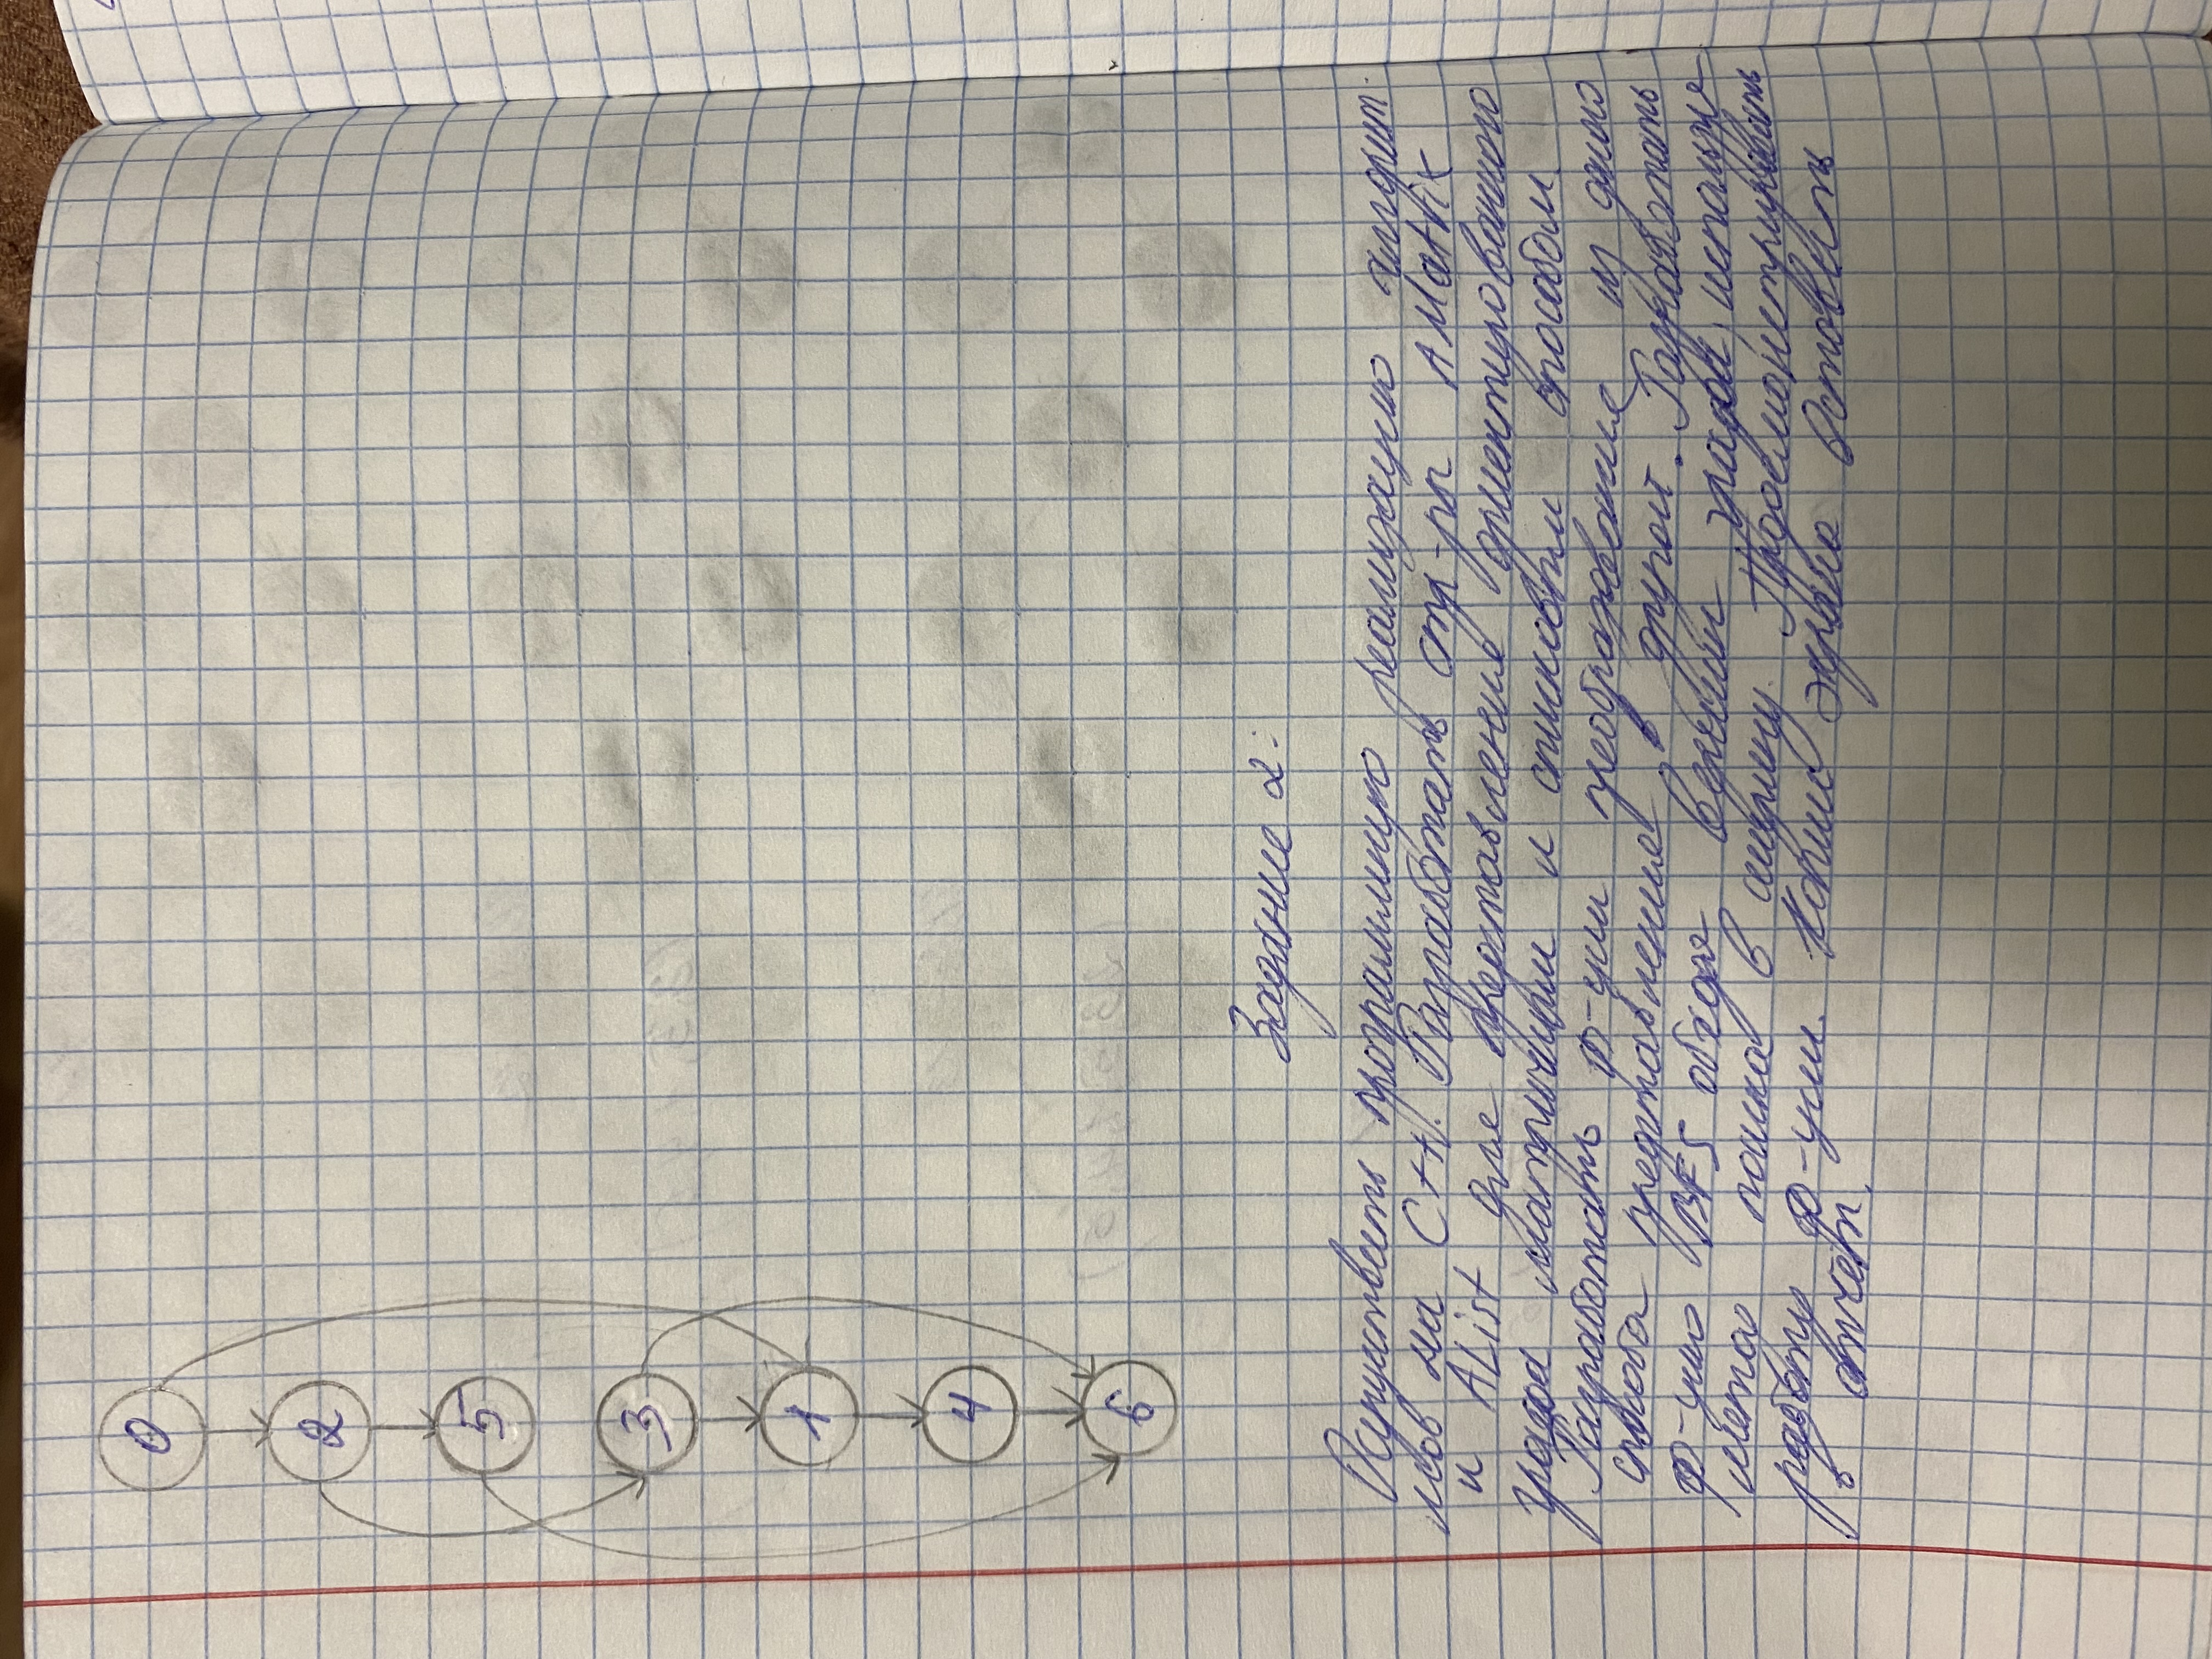 0
2
5
3
1
4
6
Задание 2:
Осуществить программную реализацию алгорит-
мов на C++. Разработать стр-ры AMatrix
и AList для представления ориентированного
графа матричным и списковым способом.
Разработать ф-ции преобразования из одного
способа представления в другой. Разработать
ф-цию BFS обхода вершин графа, используя
метод поиска в ширину. Продемонстрировать
работу ф-ции. Копии экрана вставить
в отчёт.